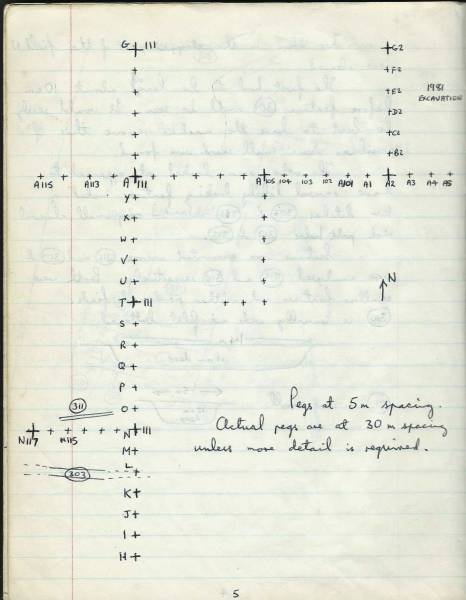 G 111 G2
F2
E2 1981
EXCAVATION
D2
C2
B2
A115 A113 A 111 A 105 104 103 102 A101 A1 A2 A3 A4 A5
Y
X
W
V
U N
T 111
S
R
Q
P
311 O
Pegs at 5m spacing.
N117 N115 N 111 Actual pegs are at 30 m spacing
M unless more detail is required.
L
303
K
J
I
H
5